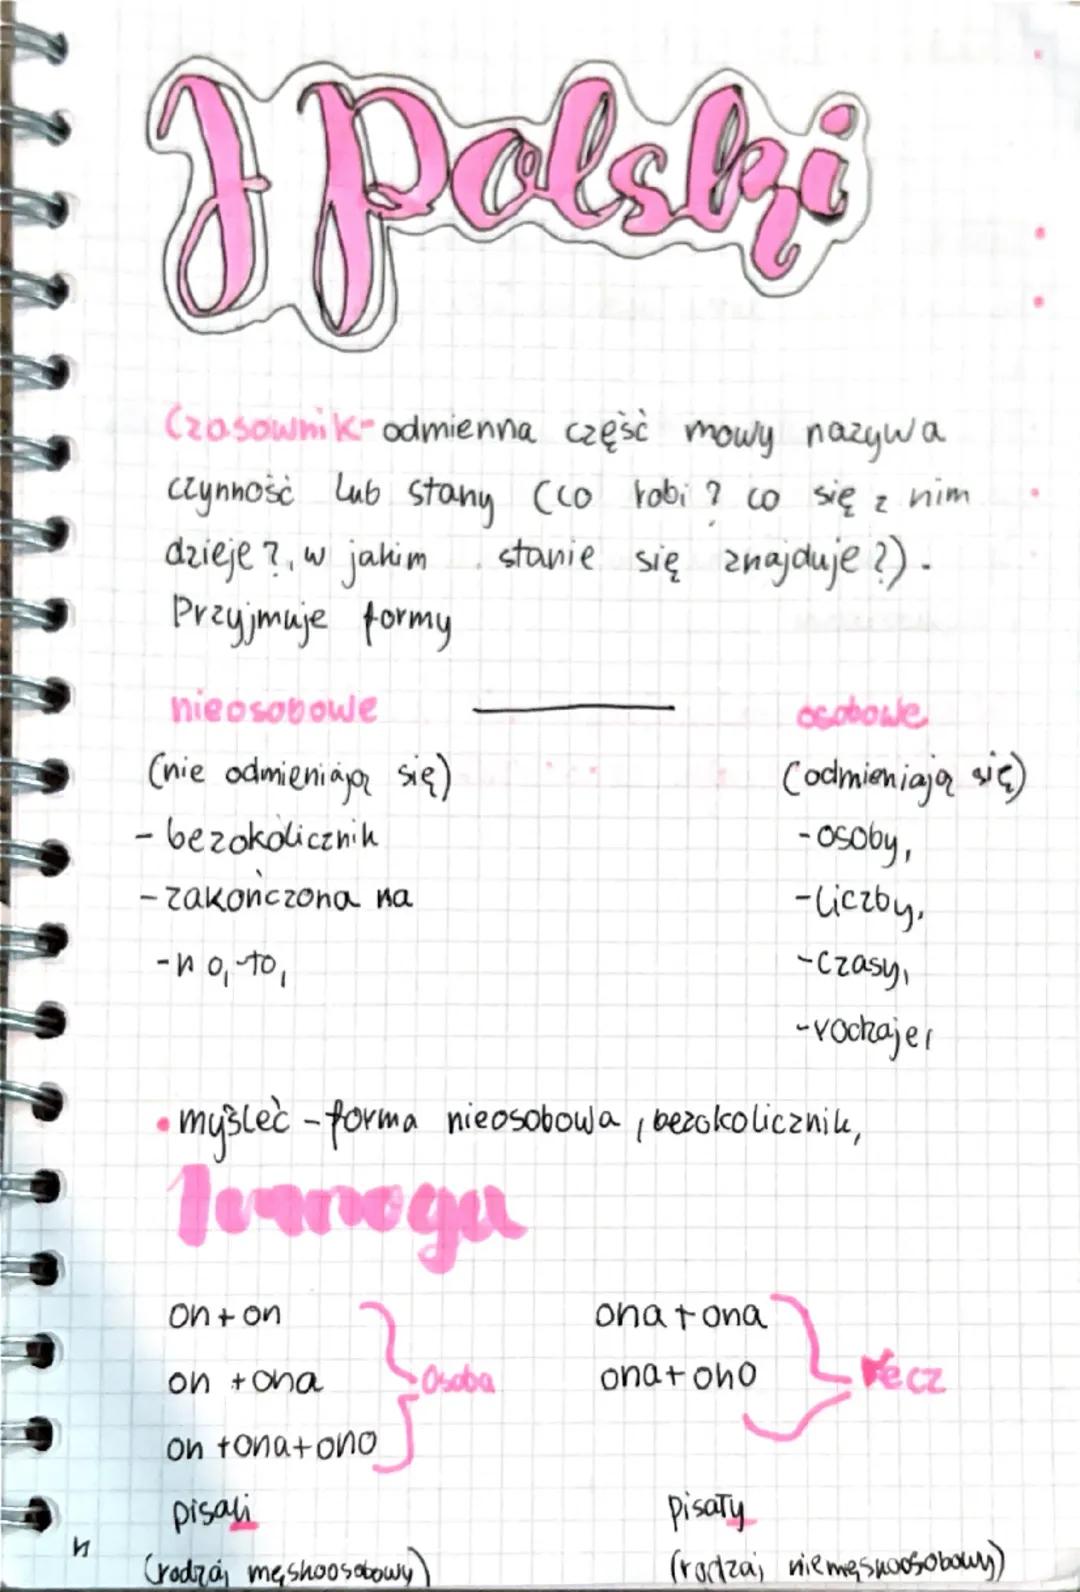 J Polski
Czasownik- odmienna część mowy nazywa
czynność lub stany (co robi? co się z nim
dzieje?, w jakim stanie się znajduje?).
Przyjmuje formy
nieosobowe — osobowe
(nie odmieniają się) (odmieniają się)
- bezokolicznik - osoby,
- zakończona na - liczby,
-no, -to, - czasy,
- rodzaje,
• myśleć - forma nieosobowa, bezokolicznik,
on + on ona + ona
Osoba
on + ona ona + ono
Rzecz
on + ona + ono
pisali pisały
(rodzaj męskoosobowy) (rodzaj niemęskoosobowy)